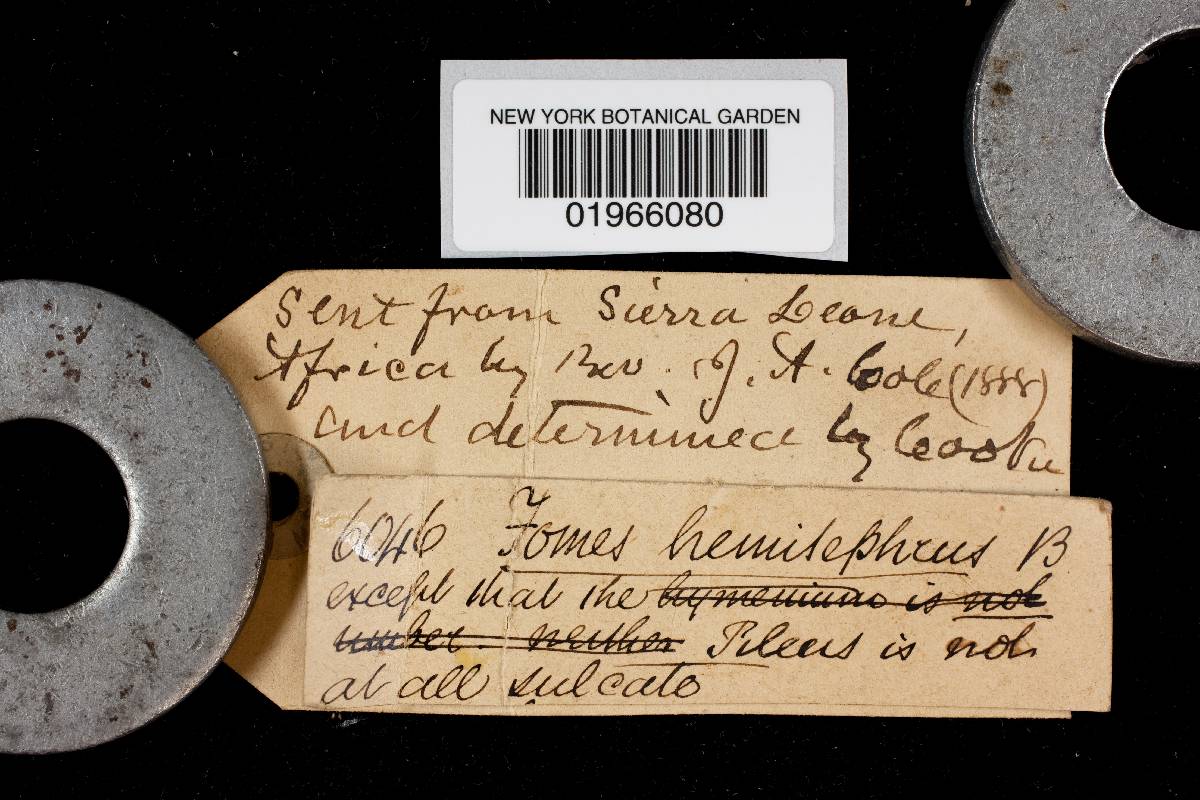 NEW YORK BOTANICAL GARDEN
01966080
Sent from Sierra Leone,
Africa by Rev. J. A. Cole (1888)
and determined by Cooke
6046 Fomes hemitephrus B
except that the hymenium is not
umber. neither Pileus is not
at all sulcate